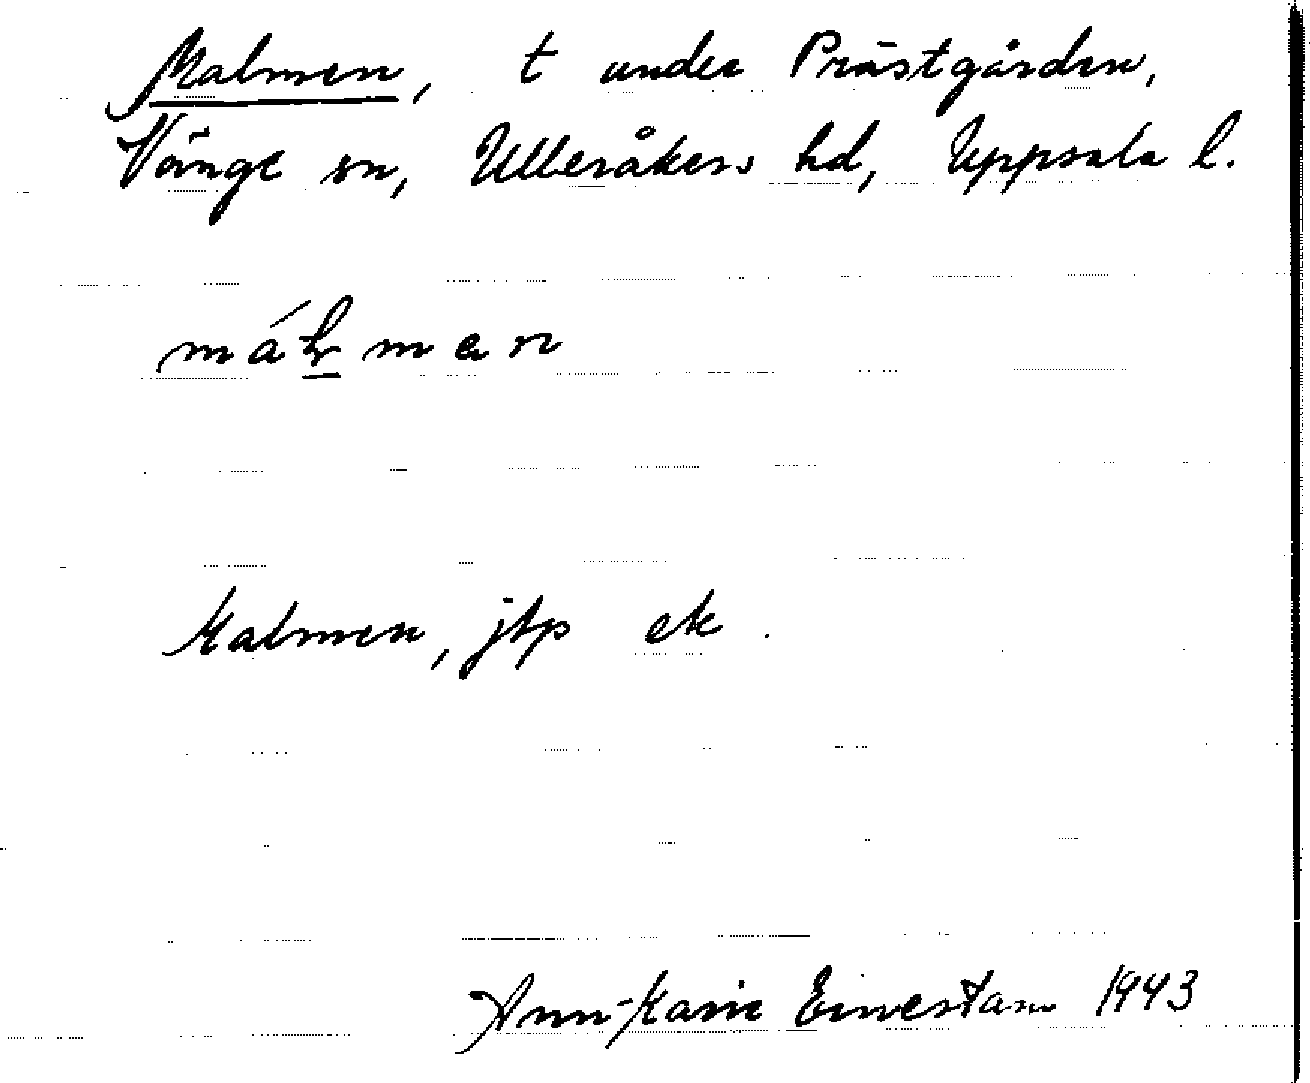 Malmen, t under Prästgården,
Vänge sn, Ulleråkers hd, Uppsala l.
Malmen, jbp ek.
Ann-Karin 1943